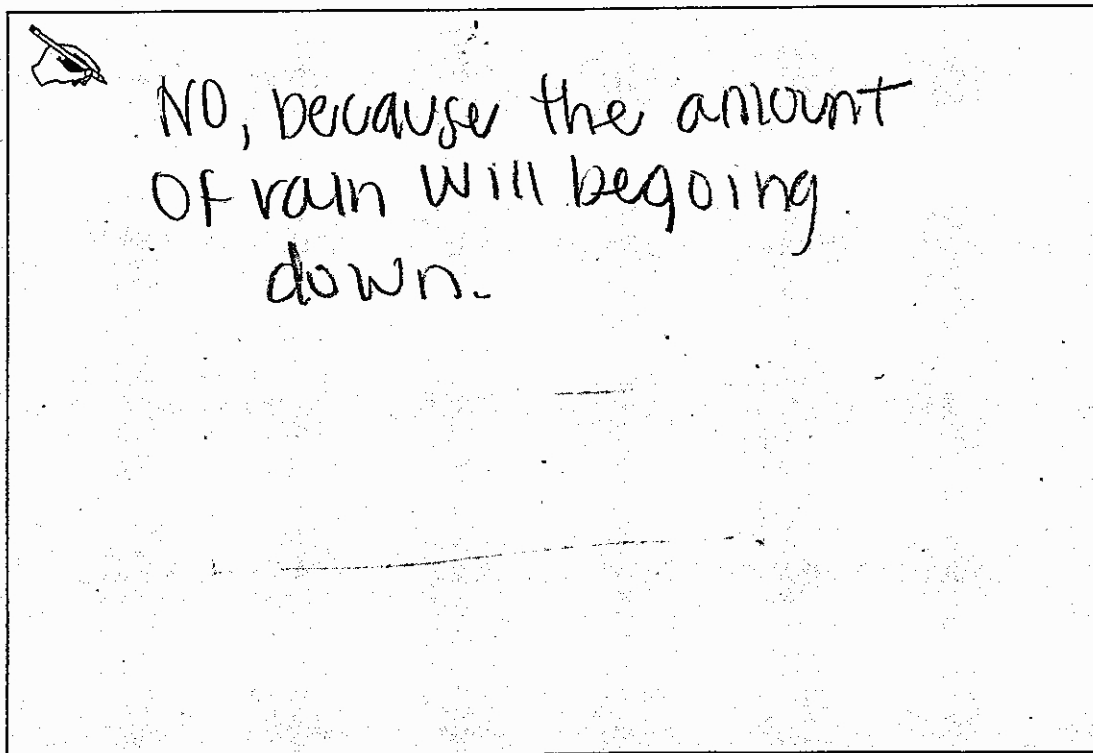 NO, because the amount
of rain will begoing
down.